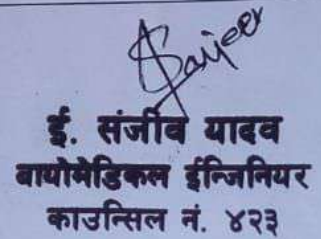 Sanjeev
ई. संजीव यादव
बायोमेडिकल ईन्जिनियर
काउन्सिल नं. ४२३